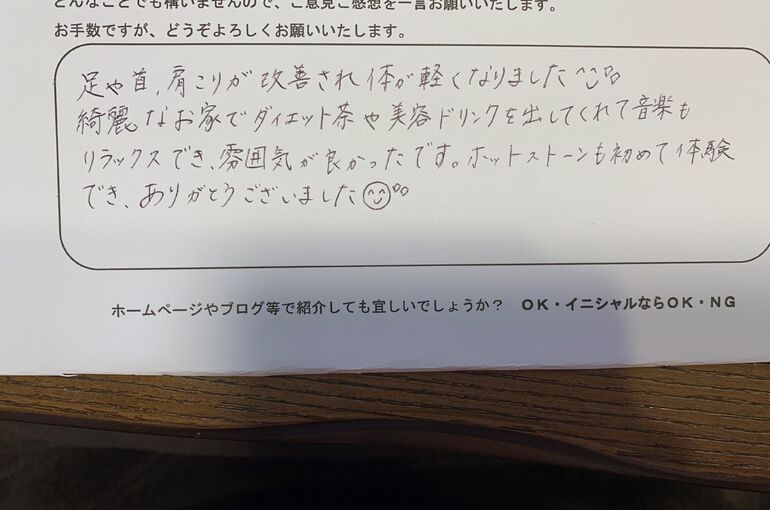 どんなことでも構いませんので、ご意見ご感想を一言お願いいたします。
お手数ですが、どうぞよろしくお願いいたします。
足や首,肩こりが改善され体が軽くなりました^^
綺麗なお家でダイエット茶や美容ドリンクを出してくれて音楽も
リラックスでき、雰囲気が良かったです。ホットストーンも初めて体験
でき、ありがとうございました
ホームページやブログ等で紹介しても宜しいでしょうか？ OK・イニシャルならOK・NG